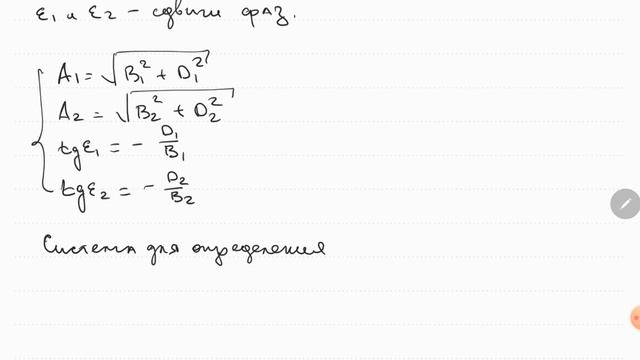 ε₁ и ε₂ – сдвиги фаз.
A₁ = √(B₁² + D₁²)
A₂ = √(B₂² + D₂²)
tgε₁ = – D₁/B₁
tgε₂ = – D₂/B₂
Система для определения